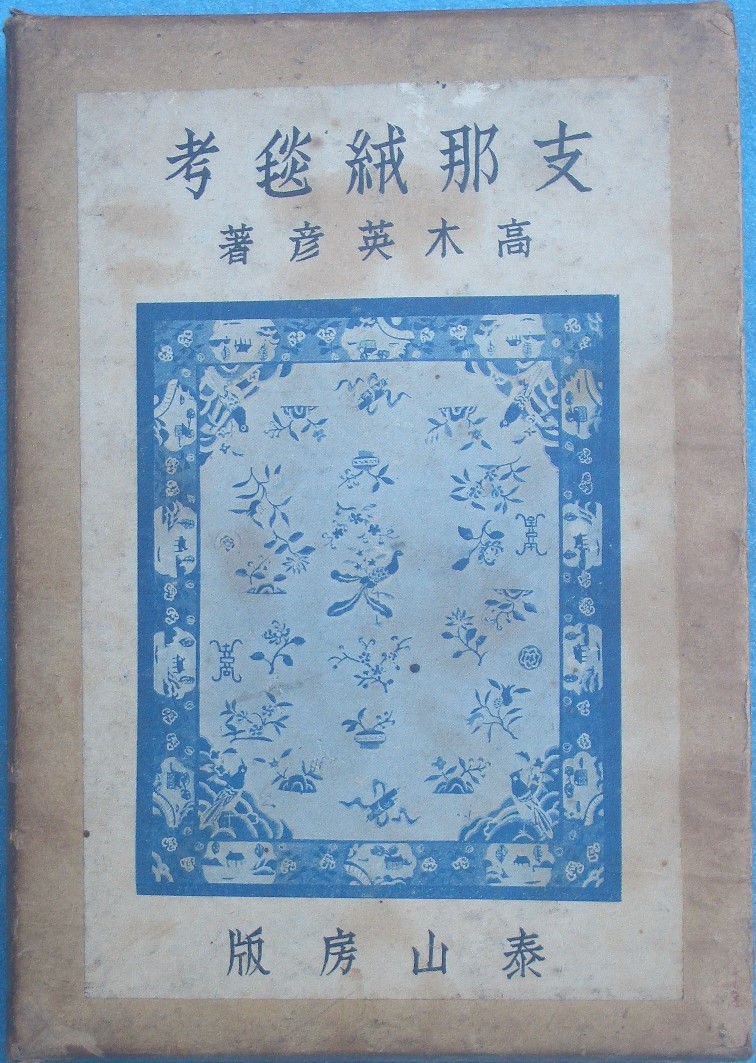 支那絨毯考
高木英彦著
泰山房版